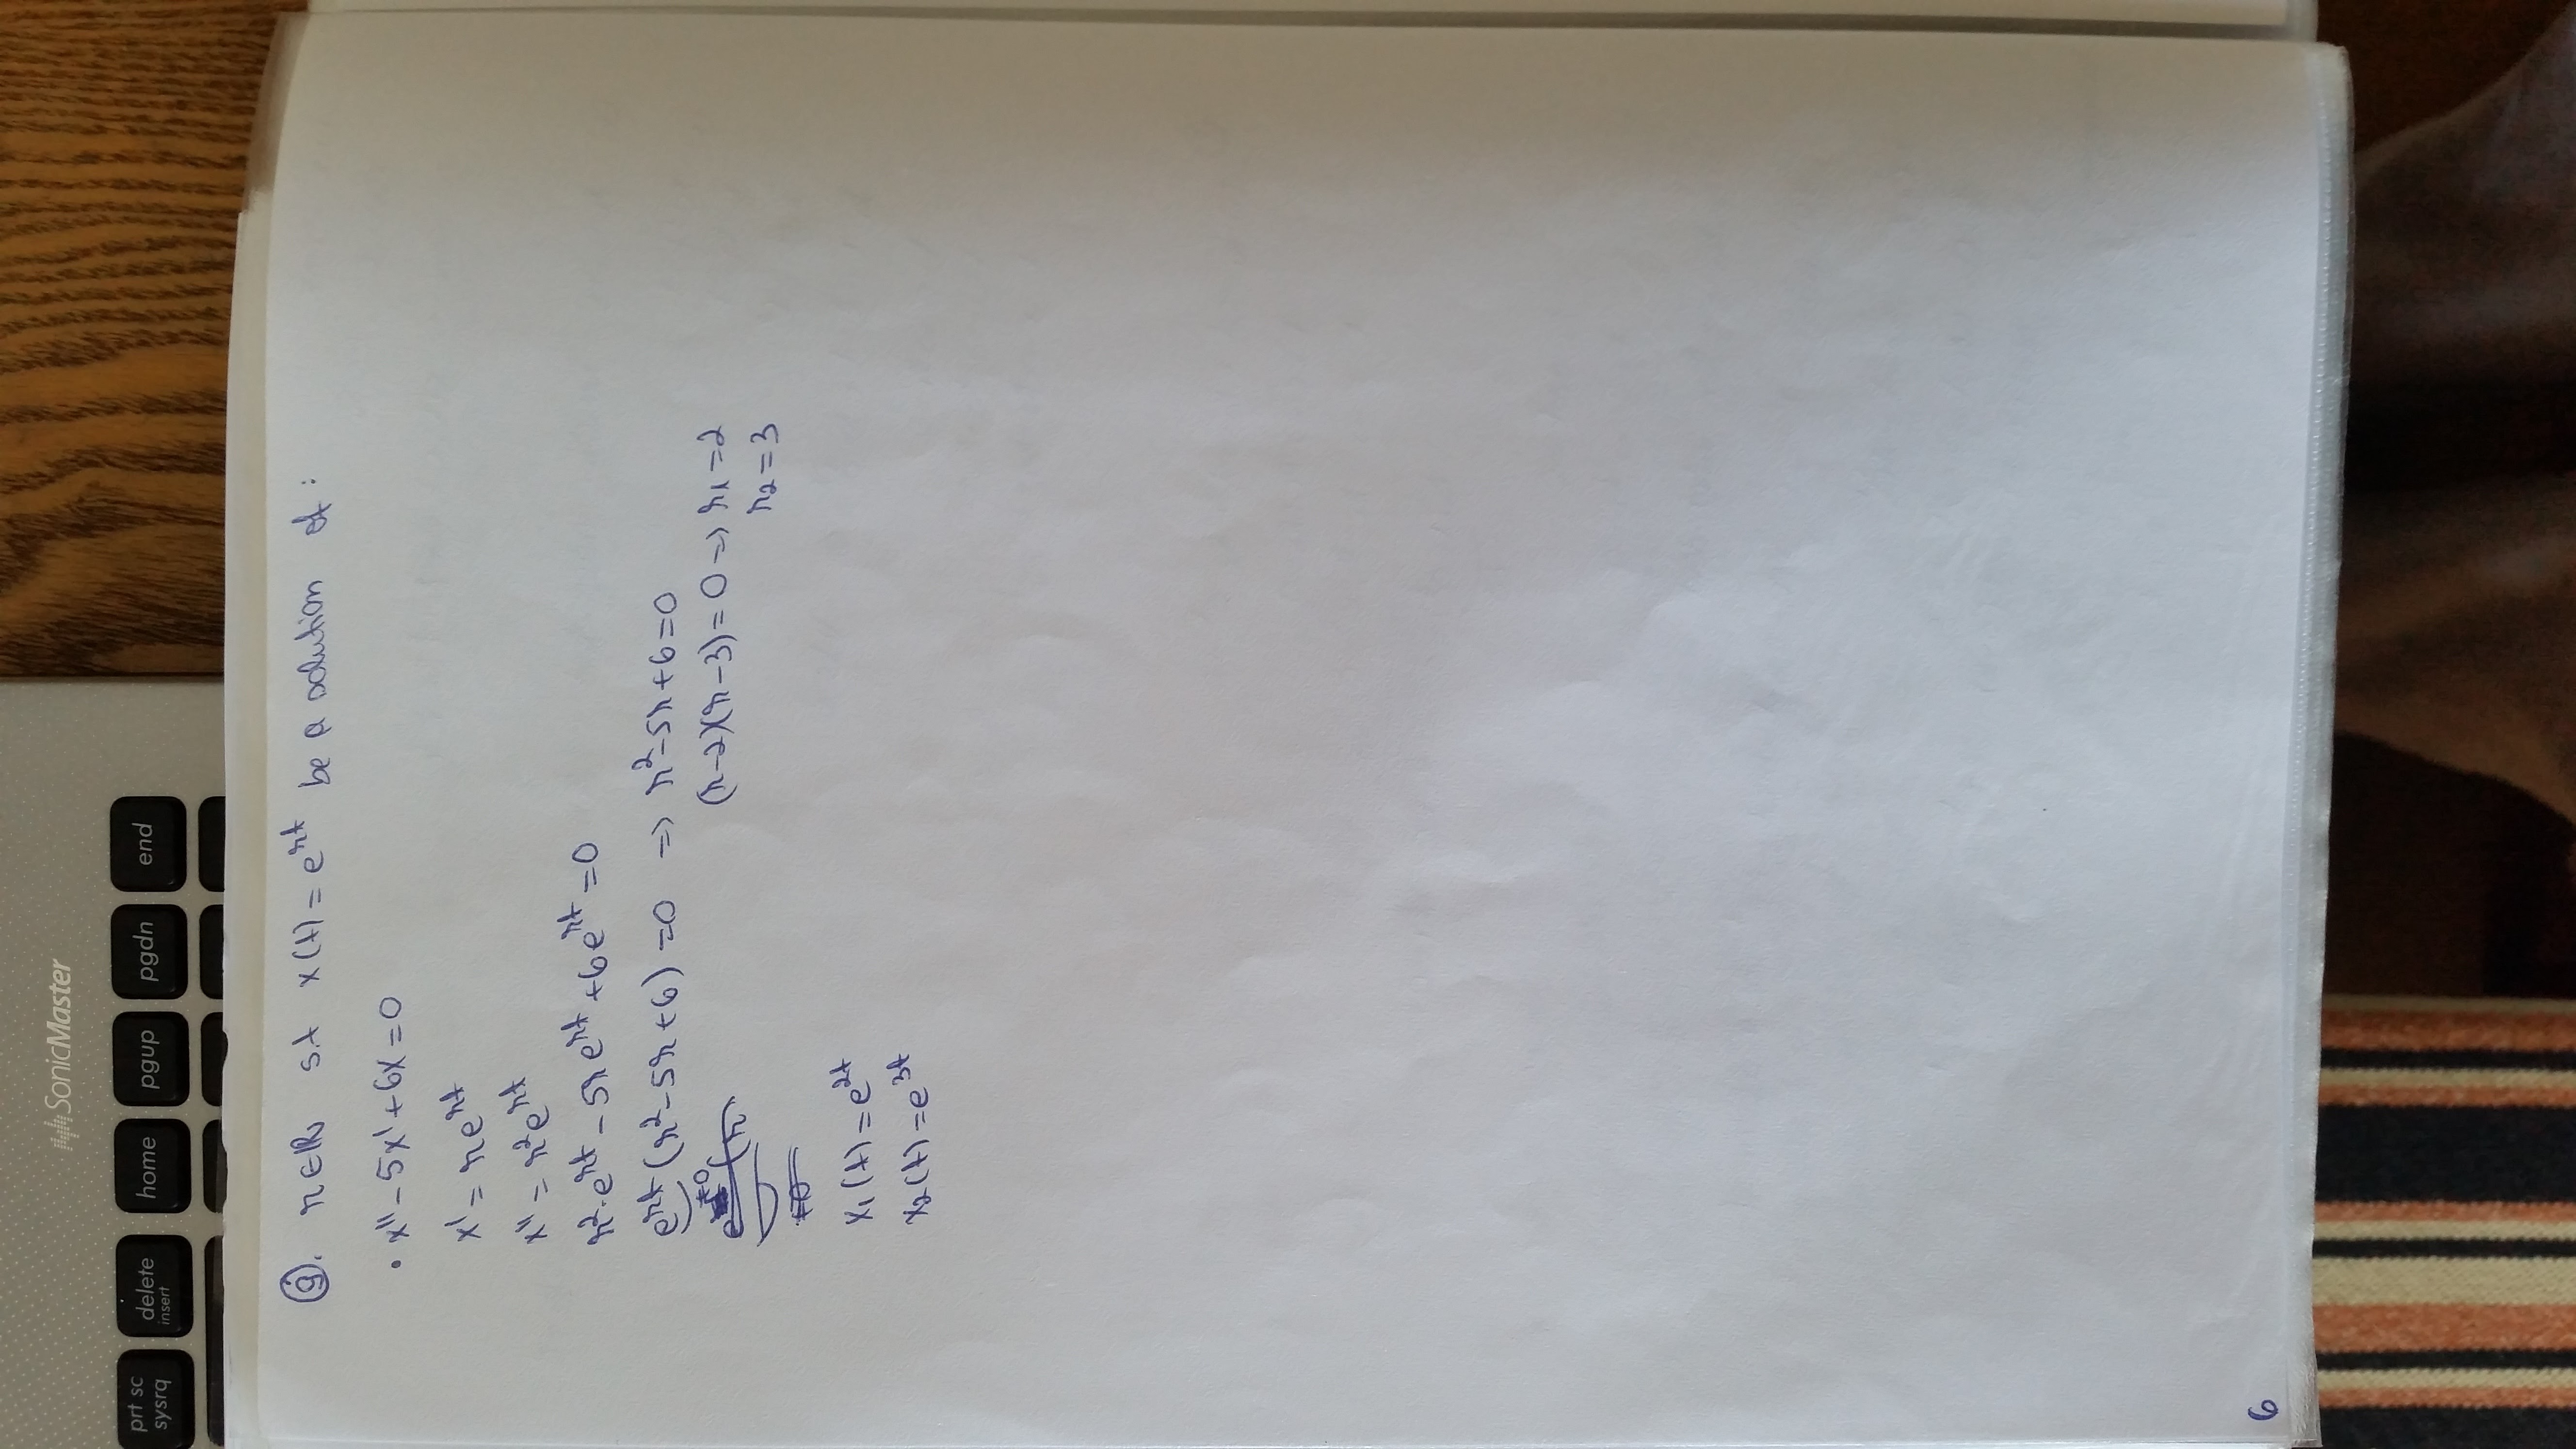 SonicMaster
prt sc
sysrq
delete
insert
home
pgup
pgdn
end
⑨. r∈ℝ s.t x(t) = e^{rt} be a solution of :
• x'' - 5x' + 6x = 0
x' = re^{rt}
x'' = r²e^{rt}
r²·e^{rt} - 5re^{rt} + 6e^{rt} = 0
e^{rt}(r² - 5r + 6) = 0 => r² - 5r + 6 = 0
≠0
(r-2)(r-3) = 0 => r₁ = 2
r₂ = 3
x₁(t) = e^{2t}
x₂(t) = e^{3t}
6